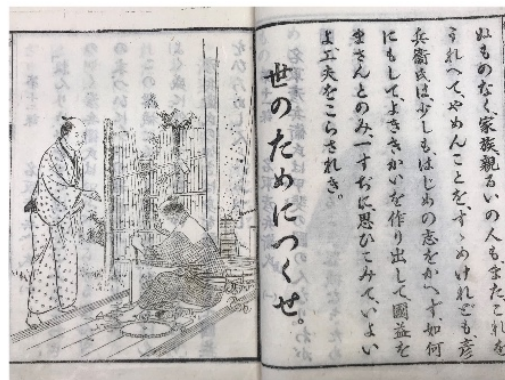 ぬものなく、家族、親るいの人も、また、これを
うれへて、やめんことを、すゝめけれども、彦
兵衞氏は少しも、はじめの志をかへず、如何
にもして、よききかいを作り出して、國益を
まさんとのみ、一すぢに思ひこみて、いよい
よ工夫をこらされき。
世のためにつくせ。